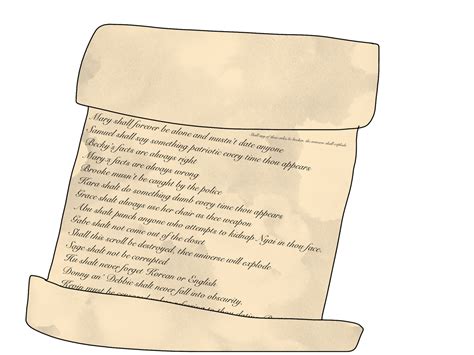 Shall any of these rules be broken, the universe shall explode
Mary shall forever be alone and mustn't date anyone
Samuel shall say something patriotic every time thou appears
Becky's facts are always right
Mary's facts are always wrong
Brooke musn't be caught by the police
Kara shalt do something dumb every time thou appears
Grace shalt always use her chair as thee weapon
Abu shalt punch anyone who attempts to kidnap Nyai in thou face.
Gabe shalt not come out of the closet
Shall this scroll be destroyed, thee universe will explode
Sage shalt not be corrupted
shalt never forget Korean or English
Donny an' Debbie shalt never fall into obscurity.
Kevin must be